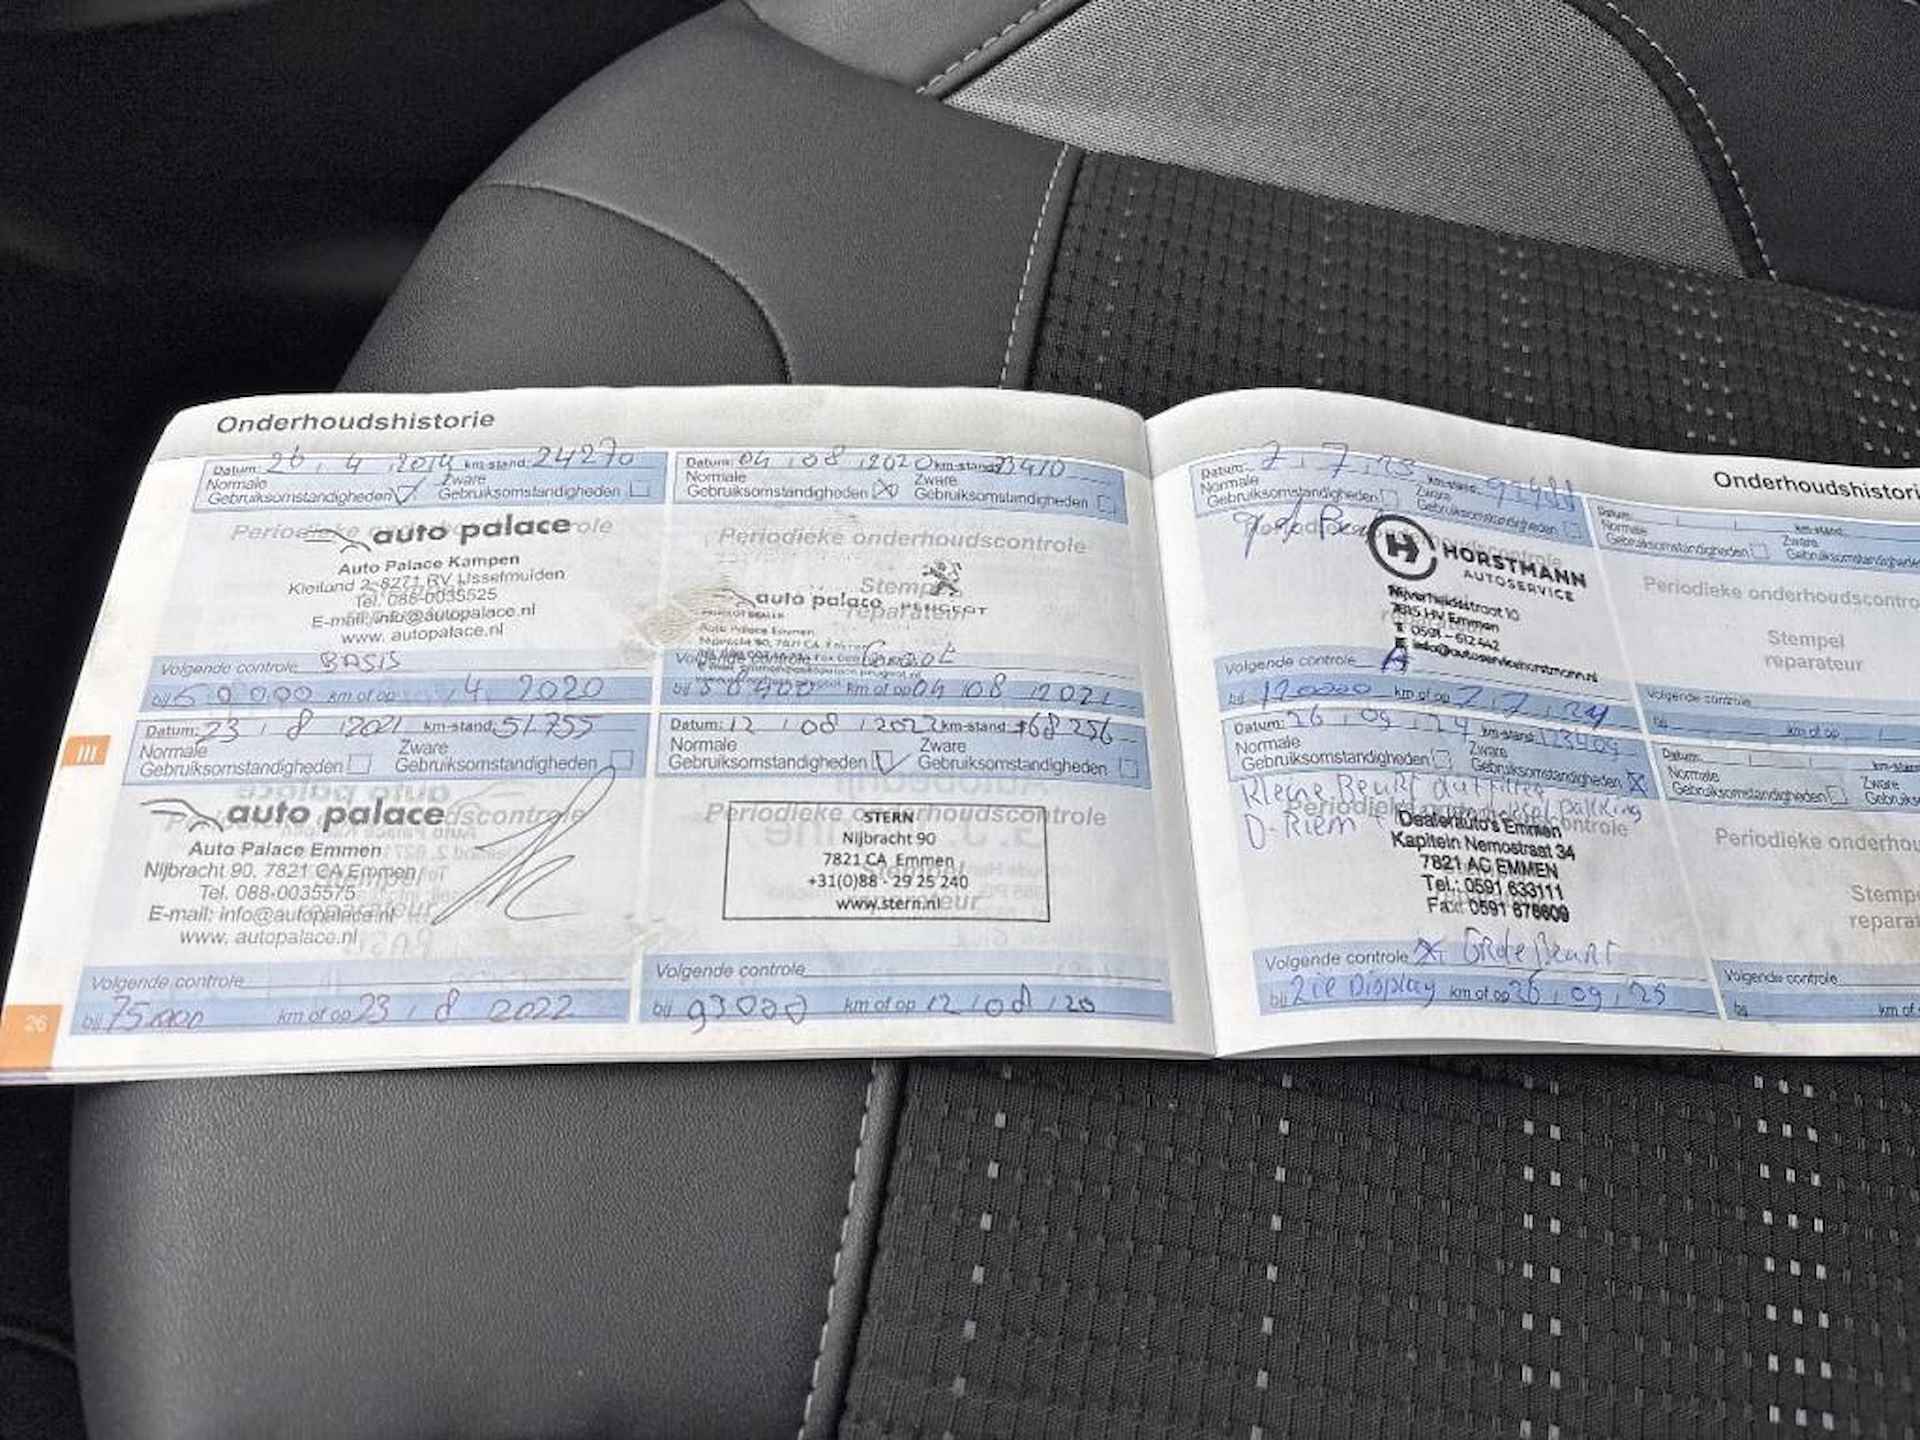 Onderhoudshistorie
Datum: 26 4 km-stand: 24270
Normale
Gebruiksomstandigheden
Zware
Gebruiksomstandigheden
Periodieke onderhoudscontrole
auto palace
Auto Palace Kampen
Kleilund 2-8271 RV IJsselmuiden
Tel. 088-0035525
E-mail: info@autopalace.nl
www. autopalace.nl
Volgende controle BASIS
bij km of op 4 2020
Datum: 04 08 2020 km-stand:
Normale
Gebruiksomstandigheden
Zware
Gebruiksomstandigheden
Periodieke onderhoudscontrole
Stempel
reparateur
auto palace PEUGEOT
Auto Palace Emmen
Volgende controle Groot
bij km of op 04 08 2021
Datum: 23 8 2021 km-stand: 51.755
Normale
Gebruiksomstandigheden
Zware
Gebruiksomstandigheden
auto palace
Auto Palace Emmen
Nijbracht 90, 7821 CA Emmen
Tel. 088-0035575
E-mail: info@autopalace.nl
www. autopalace.nl
Volgende controle
bij 75.000 km of op 23 8 2022
Datum: 12 08 2022 km-stand: 68256
Normale
Gebruiksomstandigheden
Zware
Gebruiksomstandigheden
Periodieke onderhoudscontrole
STERN
Nijbracht 90
7821 CA Emmen
+31(0)88 - 29 25 240
www.stern.nl
Volgende controle
bij 93000 km of op 12 08 20
III
26
Onderhoudshistori
Datum: 7 7 23 km-stand:
Normale
Gebruiksomstandigheden
Zware
Gebruiksomstandigheden
HORSTMANN
AUTOSERVICE
Nijverheidsstraat 10
7815 HV Emmen
T 0591 - 612 442
E info@autoservicehorstmann.nl
Volgende controle A
bij 120000 km of op 7 7 24
Datum: 26 09 24 km-stand: 113409
Normale
Gebruiksomstandigheden
Zware
Gebruiksomstandigheden
Kleine Beurt
D-Riem
Dealerauto's Emmen
Kapitein Nemostraat 34
7821 AC EMMEN
Tel.: 0591 633111
Fax: 0591 676609
Volgende controle Grote Beurt
bij Zie Display km of op 26 09 25
Datum: km-stand:
Normale
Gebruiksomstandigheden
Zware
Gebruiksomstandighede
Periodieke onderhoudscontro
Stempel
reparateur
Volgende controle
bij km of op
Datum: km-stan
Normale
Gebruiksomstandigheden
Zware
Gebruiks
Periodieke onderhou
Stemp
reparat
Volgende controle
bij km of